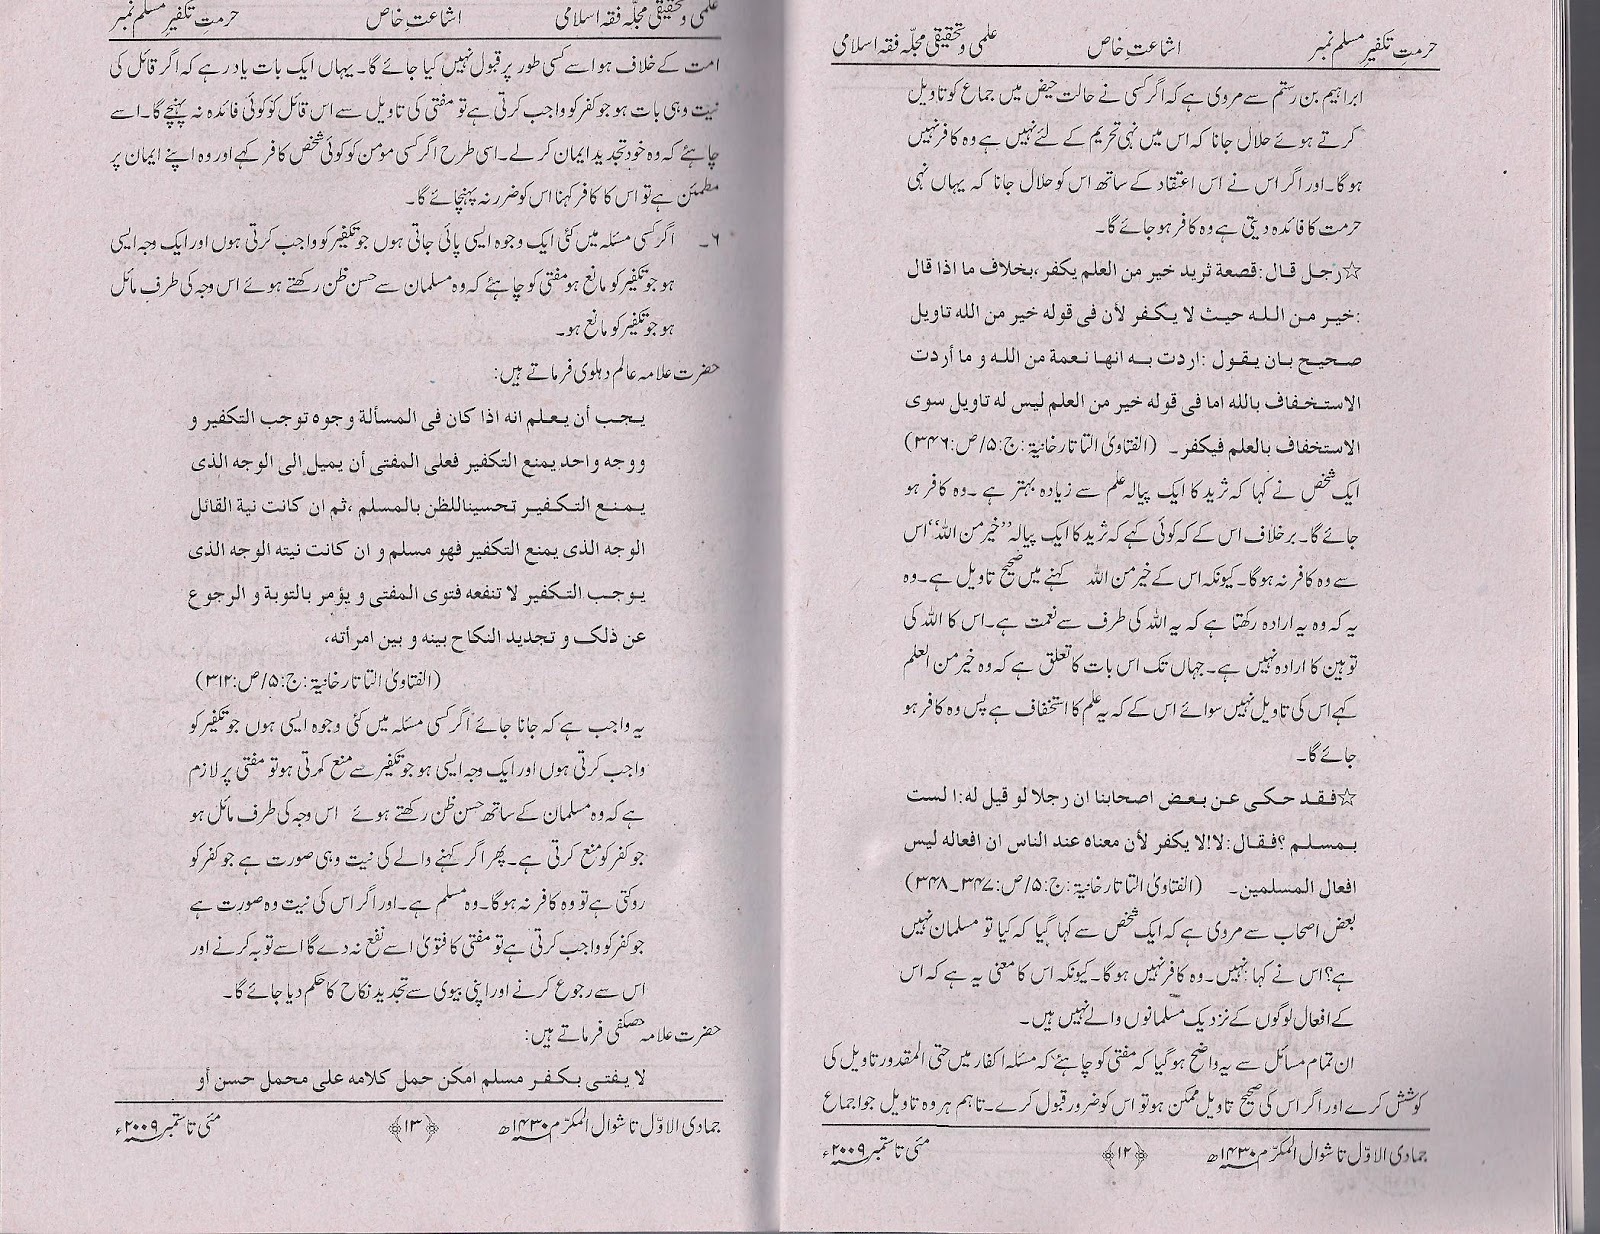 حرمتِ تکفیرِ مسلم نمبر اشاعتِ خاص علمی و تحقیقی مجلّہ فقہ اسلامی
ابراہیم بن رستم سے مروی ہے کہ اگر کسی نے حالت حیض میں جماع کو تاویل
کرتے ہوئے حلال جانا کہ اس میں نہی تحریم کے لئے نہیں ہے وہ کافر نہیں
ہوگا۔ اور اگر اس نے اس اعتقاد کے ساتھ اس کو حلال جانا کہ یہاں نہی
حرمت کا فائدہ دیتی ہے وہ کافر ہو جائے گا۔
☆رجل قال: قصعة ثرید خیر من العلم یکفر، بخلاف ما اذا قال
:خیر من اللہ حیث لا یکفر لأن فی قوله خیر من اللہ تاویل
صحیح بان یقول :اردت به انها نعمة من اللہ و ما أردت
الاستخفاف باللہ اما فی قوله خیر من العلم لیس له تاویل سوی
الاستخفاف بالعلم فیکفر۔ (الفتاویٰ التاتارخانیۃ: ج:۵/ص:۳۴۶)
ایک شخص نے کہا کہ ثرید کا ایک پیالہ علم سے زیادہ بہتر ہے۔ وہ کافر ہو
جائے گا۔ برخلاف اس کے کہ کوئی کہے کہ ثرید کا ایک پیالہ ’’خیر من اللہ‘‘ اس
سے وہ کافر نہ ہوگا۔ کیونکہ اس کے خیر من اللہ کہنے میں صحیح تاویل ہے۔ وہ
یہ کہ وہ یہ ارادہ رکھتا ہے کہ یہ اللہ کی طرف سے نعمت ہے۔ اس کا اللہ کی
توہین کا ارادہ نہیں ہے۔ جہاں تک اس بات کا تعلق ہے کہ وہ خیر من العلم
کہے اس کی تاویل نہیں سوائے اس کے کہ یہ علم کا استخفاف ہے پس وہ کافر ہو
جائے گا۔
☆فقد حکی عن بعض اصحابنا ان رجلا لو قیل له: الست
بمسلم ؟فقال: لا!لا یکفر لأن معناه عند الناس ان افعاله لیس
افعال المسلمین۔ (الفتاویٰ التاتارخانیۃ: ج:۵/ص:۳۴۷۔۳۴۸)
بعض اصحاب سے مروی ہے کہ ایک شخص سے کہا گیا کہ کیا تو مسلمان نہیں
ہے؟ اس نے کہا: نہیں۔ وہ کافر نہیں ہوگا۔ کیونکہ اس کا معنی یہ ہے کہ اس
کے افعال لوگوں کے نزدیک مسلمانوں والے نہیں ہیں۔
ان تمام مسائل سے یہ واضح ہوگیا کہ مفتی کو چاہئے کہ مسئلہ اکفار میں حتی المقدور تاویل کی
کوشش کرے اور اگر اس کی صحیح تاویل ممکن ہو تو اس کو ضرور قبول کرے۔ تاہم ہر وہ تاویل جو اجماع
جمادی الاوّل تا شوال المکرّم ۱۴۳۰ھ ﴿۱۲﴾ مئی تا ستمبر ۲۰۰۹ء
علمی و تحقیقی مجلّہ فقہ اسلامی اشاعتِ خاص حرمتِ تکفیرِ مسلم نمبر
امت کے خلاف ہو اسے کسی طور پر قبول نہیں کیا جائے گا۔ یہاں ایک بات یاد رہے کہ اگر قائل کی
نیت وہی بات ہو جو کفر کو واجب کرتی ہے تو مفتی کی تاویل سے اس قائل کو کوئی فائدہ نہ پہنچے گا۔ اسے
چاہئے کہ وہ خود تجدید ایمان کر لے۔ اسی طرح اگر کسی مومن کو کوئی شخص کافر کہے اور وہ اپنے ایمان پر
مطمئن ہے تو اس کا کافر کہنا اس کو ضرر نہ پہنچائے گا۔
۶۔ اگر کسی مسئلہ میں کئی ایک وجوہ ایسی پائی جاتی ہوں جو تکفیر کو واجب کرتی ہوں اور ایک وجہ ایسی
ہو جو تکفیر کو مانع ہو مفتی کو چاہئے کہ وہ مسلمان سے حسن ظن رکھتے ہوئے اس وجہ کی طرف مائل
ہو جو تکفیر کو مانع ہو۔
حضرت علامہ عالم دہلوی فرماتے ہیں:
یجب أن یعلم انه اذا کان فی المسألة وجوه توجب التکفیر و
ووجه واحد یمنع التکفیر فعلی المفتی أن یمیل إلی الوجه الذی
یمنع التکفیر تحسیناللظن بالمسلم ،ثم ان کانت نیة القائل
الوجه الذی یمنع التکفیر فهو مسلم و ان کانت نیته الوجه الذی
یوجب التکفیر لا تنفعه فتوی المفتی و یؤمر بالتوبة و الرجوع
عن ذلک و تجدید النکاح بینه و بین امرأته،
(الفتاویٰ التاتارخانیۃ: ج:۵/ص:۳۱۲)
یہ واجب ہے کہ جانا جائے اگر کسی مسئلہ میں کئی وجوہ ایسی ہوں جو تکفیر کو
واجب کرتی ہوں اور ایک وجہ ایسی ہو جو تکفیر سے منع کرتی ہو تو مفتی پر لازم
ہے کہ وہ مسلمان کے ساتھ حسن ظن رکھتے ہوئے اس وجہ کی طرف مائل ہو
جو کفر کو منع کرتی ہے۔ پھر اگر کہنے والے کی نیت وہی صورت ہے جو کفر کو
روکتی ہے تو وہ کافر نہ ہوگا۔ وہ مسلم ہے۔ اور اگر اس کی نیت وہ صورت ہے
جو کفر کو واجب کرتی ہے تو مفتی کا فتویٰ اسے نفع نہ دے گا اسے توبہ کرنے اور
اس سے رجوع کرنے اور اپنی بیوی سے تجدید نکاح کا حکم دیا جائے گا۔
حضرت علامہ حصکفی فرماتے ہیں:
لا یفتی بکفر مسلم امکن حمل کلامه علی محمل حسن أو
جمادی الاوّل تا شوال المکرّم ۱۴۳۰ھ ﴿۱۳﴾ مئی تا ستمبر ۲۰۰۹ء